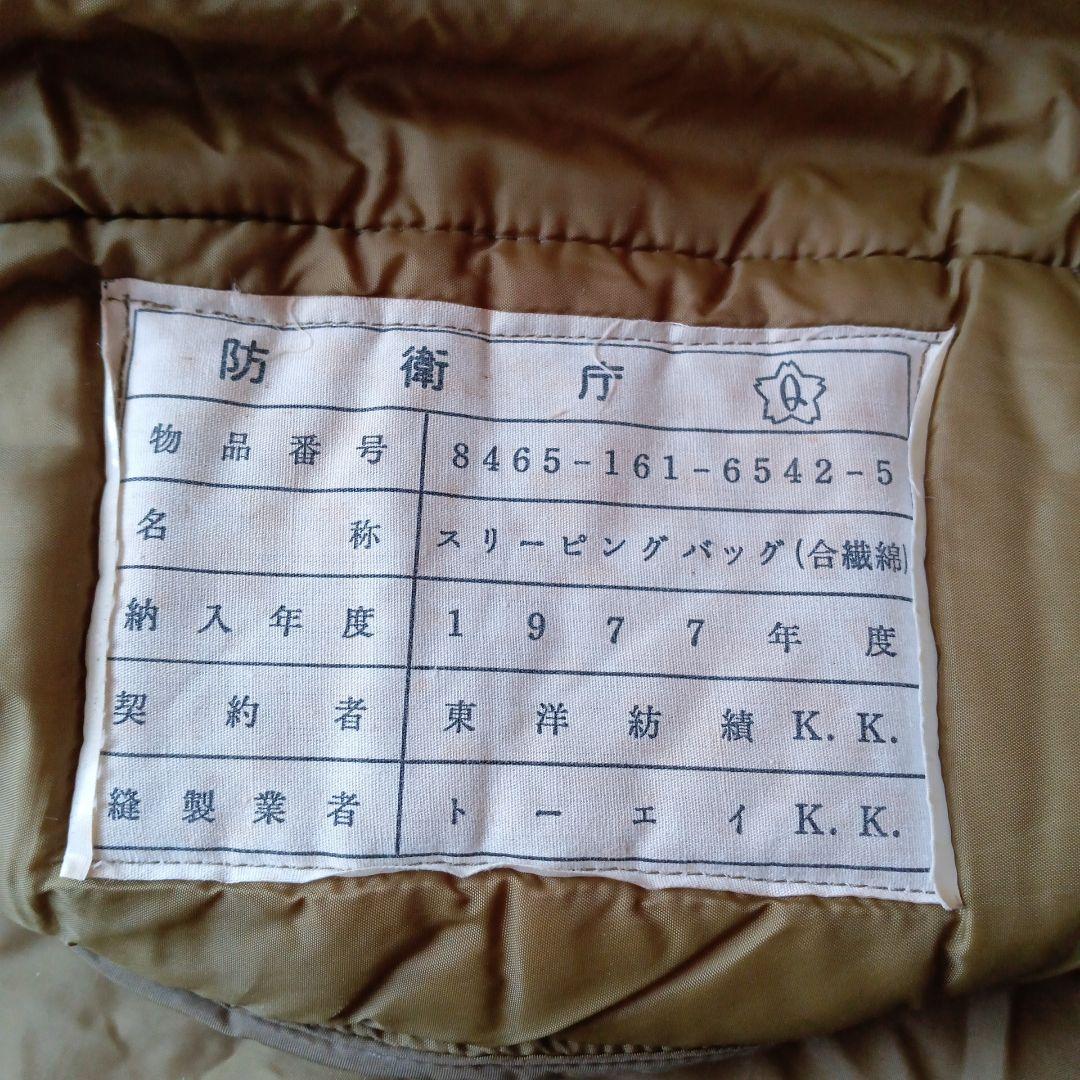 防衛庁 Q
物品番号 8465-161-6542-5
名称 スリーピングバッグ(合繊綿)
納入年度 1977年度
契約者 東洋紡績K.K.
縫製業者 トーエイK.K.